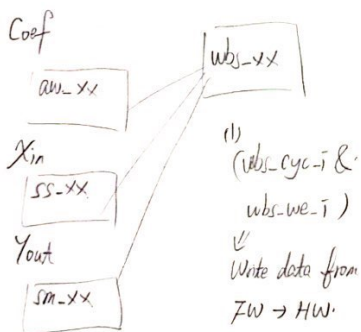 Coef
aw_xx
Xin
ss_xx
Yout
sm_xx
wbs_xx
(1)
(wbs_cyc_i &
wbs_we_i)
Write data from
FW → HW.